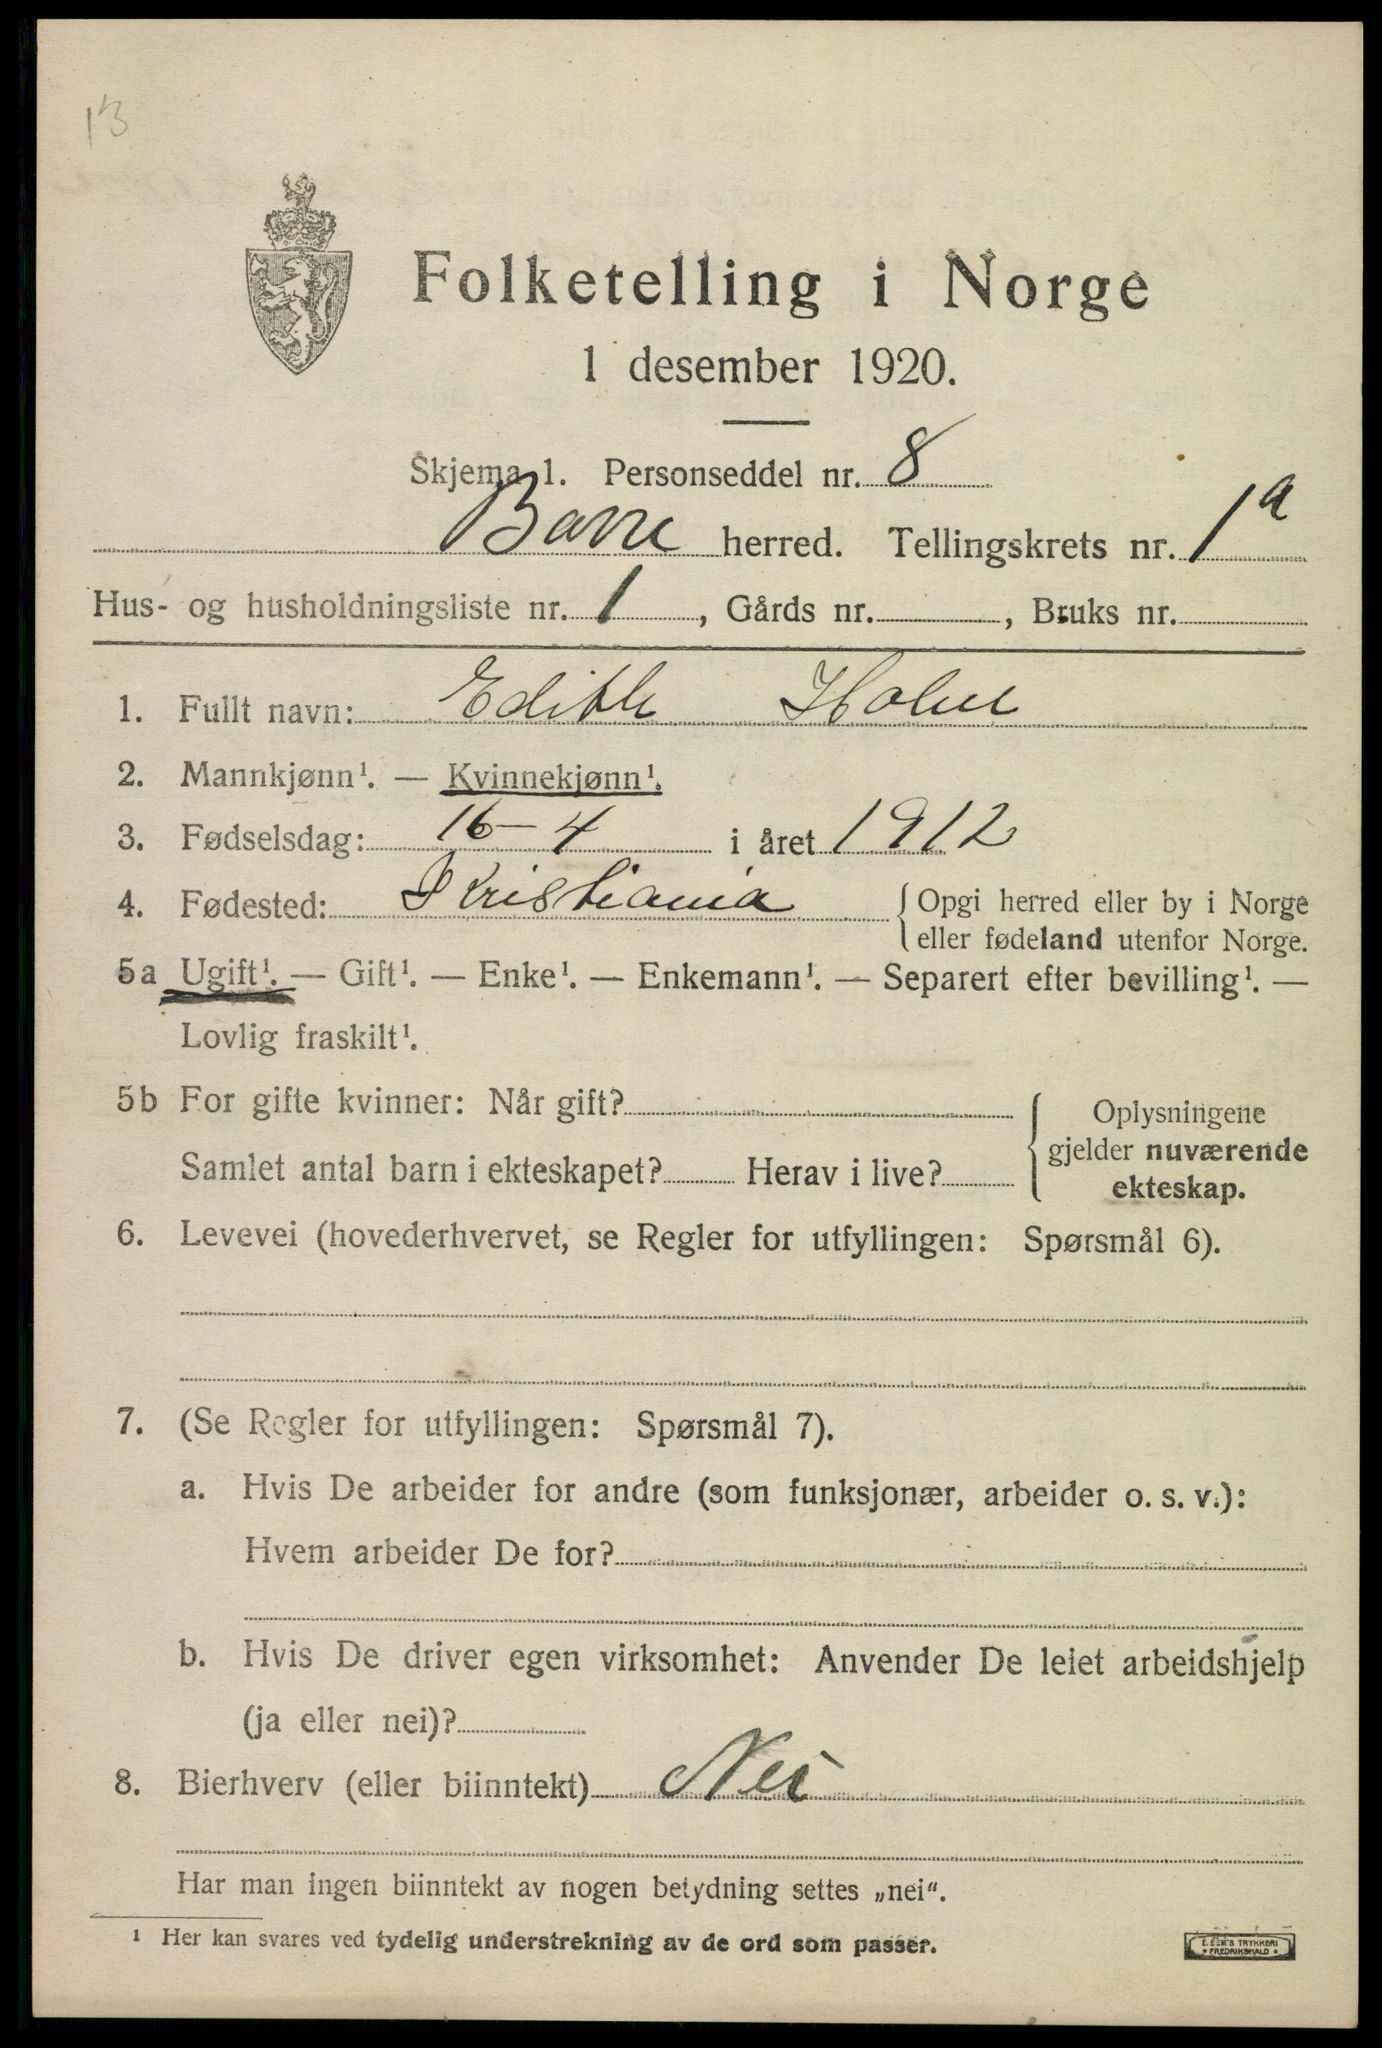 13
Folketelling i Norge
1 desember 1920.
Skjema 1. Personseddel nr. 8
Borre herred. Tellingskrets nr. 1a
Hus- og husholdningsliste nr. 1, Gårds nr. , Bruks nr.
1. Fullt navn: Edith Holm
2. Mannkjønn¹. — Kvinnekjønn¹.
3. Fødselsdag: 16-4 i året 1912
4. Fødested: Kristiania {Opgi herred eller by i Norge
eller fødeland utenfor Norge.
5a Ugift¹. — Gift¹. — Enke¹. — Enkemann¹. — Separert efter bevilling¹. —
Lovlig fraskilt¹.
5b For gifte kvinner: Når gift?
Samlet antal barn i ekteskapet? Herav i live?
{Oplysningene
gjelder nuværende
ekteskap.
6. Levevei (hovederhvervet, se Regler for utfyllingen: Spørsmål 6).
7. (Se Regler for utfyllingen: Spørsmål 7).
a. Hvis De arbeider for andre (som funksjonær, arbeider o. s. v.):
Hvem arbeider De for?
b. Hvis De driver egen virksomhet: Anvender De leiet arbeidshjelp
(ja eller nei)?
8. Bierhverv (eller biinntekt) Nei
Har man ingen biinntekt av nogen betydning settes „nei“.
¹ Her kan svares ved tydelig understrekning av de ord som passer.
E. SEM'S TRYKKERI
• FREDRIKSHALD •